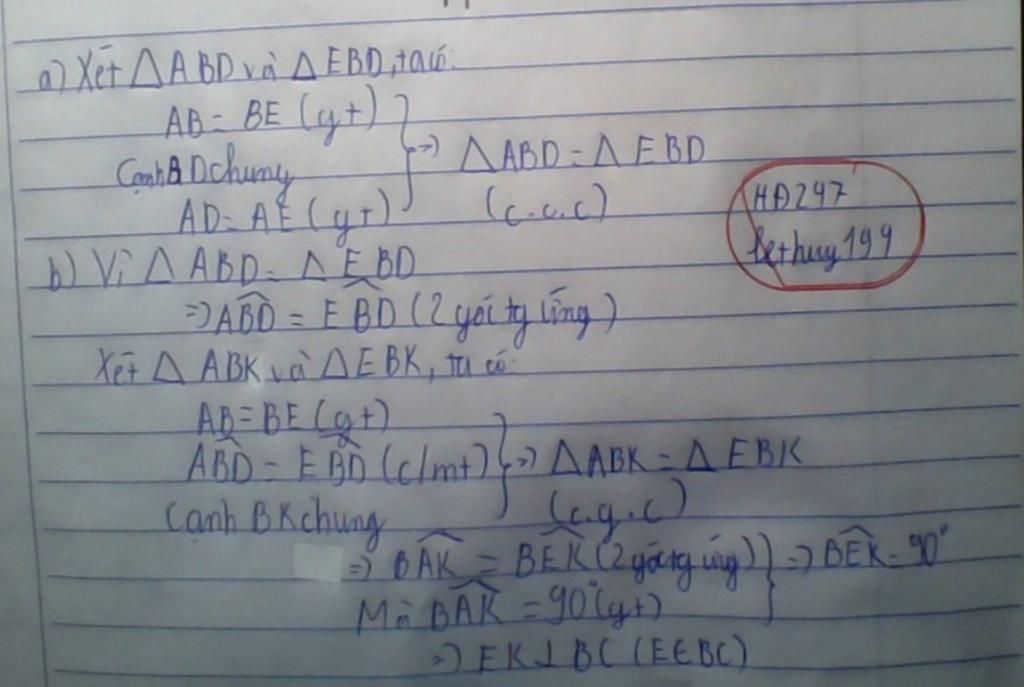 a) Xét △ABD và △EBD, ta có:
AB = BE (gt)
Cạnh BD chung
AD = AE (gt)
} => △ABD = △EBD
(c.c.c)
HĐ247
lethuy199
b) Vì △ABD = △EBD
=> ABD = EBD (2 góc tg ứng)
Xét △ABK và △EBK, ta có:
AB = BE (gt)
ABD = EBD (c/mt)
cạnh BK chung
} => △ABK = △EBK
(c.g.c)
=> BAK = BEK (2 góc tg ứng) } => BEK = 90°
Mà BAK = 90° (gt)
=> EK ⊥ BC (E ∈ BC)